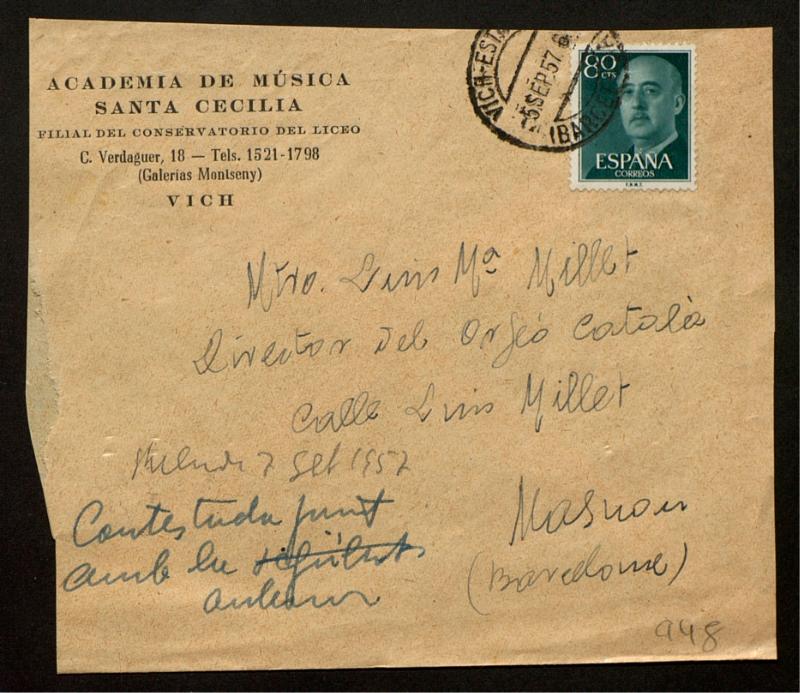 ACADEMIA DE MÚSICA
SANTA CECILIA
FILIAL DEL CONSERVATORIO DEL LICEO
C. Verdaguer, 18 — Tels. 1521-1798
(Galerías Montseny)
VICH
VICH-EST
SEP.57
(BARCELONA)
80 CTS
ESPAÑA
CORREOS
F.N.M.T.
Mtro. Luis Mª Millet
Director del Orfeó Català
Calle Luis Millet
7 Set 1957
Masnou
(Barcelona)
Contestada junt
amb la següents
anterior
948